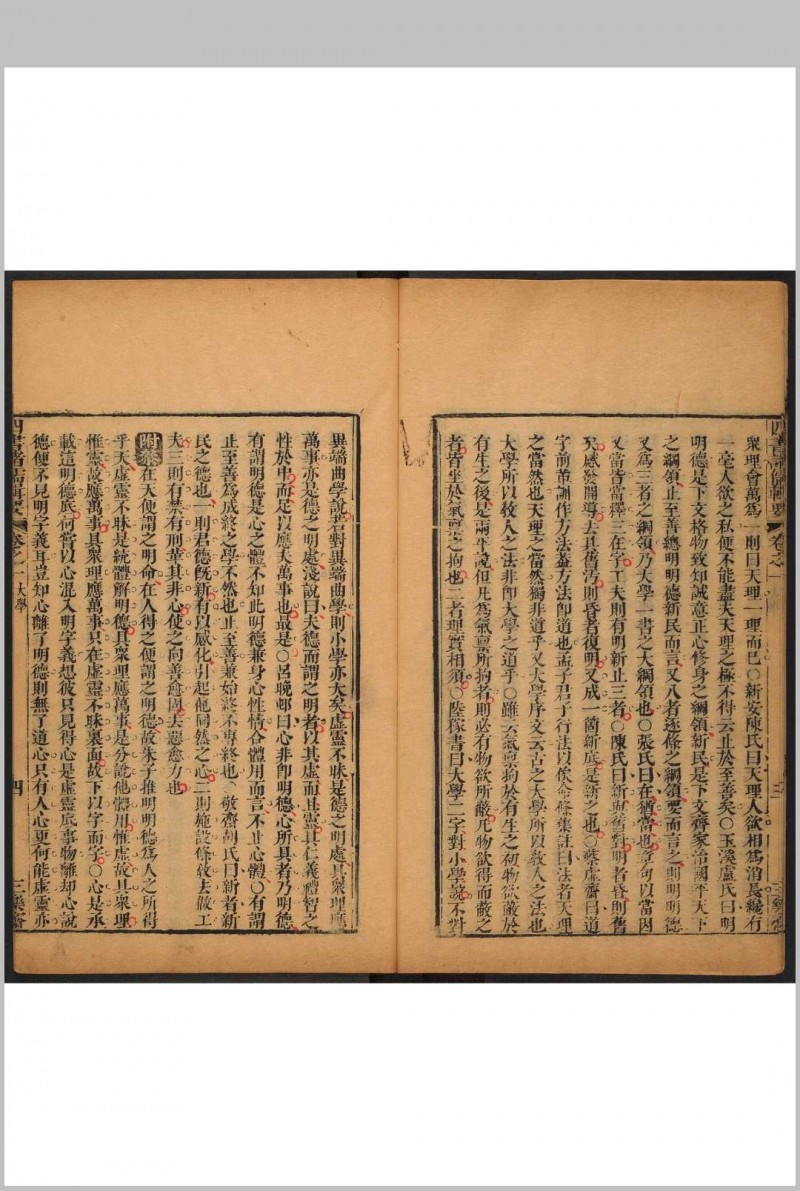 衆理會萬爲一則曰天理一理而已○新安陳氏曰天理人欲相爲消長纔有
一毫人欲之私便不能盡夫天理之極不得云止於至善矣○玉溪盧氏曰明
明德是下文格物致知誠意正心修身之綱領新民是下文齊家治國平天下
之綱領止至善總明明德新民而言又八者逐條之綱領要而言之則明明德
又爲三者之綱領乃大學一書之大綱領也○張氏曰在猶當也章句以當因
又當皆當釋三在字工夫則有明新止三者○陳氏曰新與舊對明者昏則舊
矣感發開導去其舊汚則昏者復明又成一箇新底是新之也○蔡虛齋曰道
字前輩訓作方法蓋方法卽道也孟子君子行法以俟命條集註曰法者天理
之當然也天理之當然獨非道乎又大學序文云古之大學所以敎人之法也
大學所以敎人之法非卽大學之道乎○雖云氣稟拘於有生之初物欲蔽於
有生之後是兩平說但凡爲氣稟所拘者則必有物欲所蔽凡物欲得而蔽之
者皆坐於氣稟之拘也二者理實相須○陸稼書曰大學二字對小學說不對
異端曲學說若對異端曲學則小學亦大矣虛靈不昧是德之明處具衆理應
萬事亦是德之明處淺說曰夫德而謂之明者以其虛而且靈其仁義禮智之
性於中而足以應夫萬事也最是○呂晚邨曰心非卽明德心所具者乃明德
有謂明德是心之體不知此明德兼身心性情合體用而言不止心體○有謂
止至善爲成終之學不然也止至善兼始終不專終也○敬齋胡氏曰新者新
民之德也一則君德旣新有以感化引起他同然之心二則施設條敎去做工
夫三則有禁有刑革其非心使之向善愈固去惡愈力也
附
在天便謂之明命在人得之便謂之明德故朱子推明明德爲人之所得
乎天虛靈不昧是統體解明德具衆理應萬事是分說他體用惟虛故具衆理
惟靈故應萬事具衆理應萬事只在虛靈不昧裏面故下以字而字○心是承
載這明德底何嘗以心混入明字義想彼只見得心是虛靈底事物離却心說
德便不見明字義耳豈知心離了明德則無了道心只有人心更何能虛靈亦
卷之一 大學
四